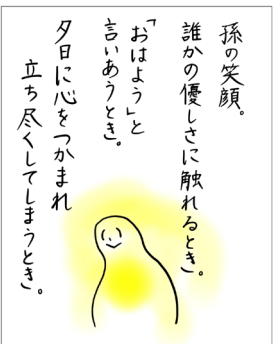 孫の笑顔。
誰かの優しさに触れるとき。
「おはよう」と
言いあうとき。
夕日に心をつかまれ
立ち尽くしてしまうとき。